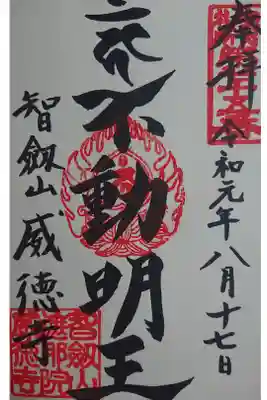 奉拝 令和元年八月十七日
不動明王
智劔山威徳寺
智劔山
威徳寺